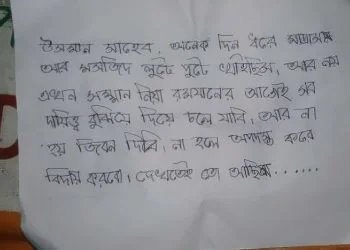 ওসমান সাহেব, অনেক দিন ধরে মাদ্রাসা
আর মসজিদ লুটে পুটে খাইছিস, আর নয়
এখন সম্মান নিয়া রমযানের আগেই সব
দায়িত্ব বুঝিয়ে দিয়ে চলে যাবি, আর না
হয় জিবন দিবি, না হলে অপদস্ত করে
বিদায় করবো, দেখতেই তো আছিস.......